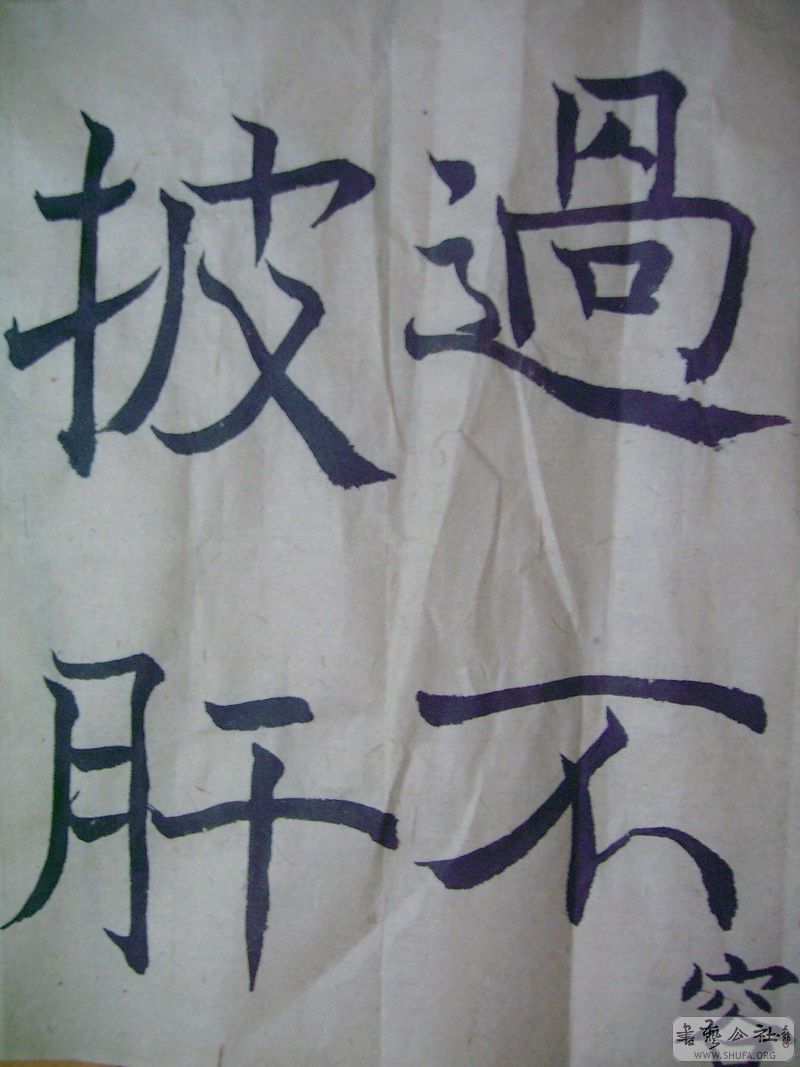 過不
披肝
容
書藝公社
WWW.SHUFA.ORG